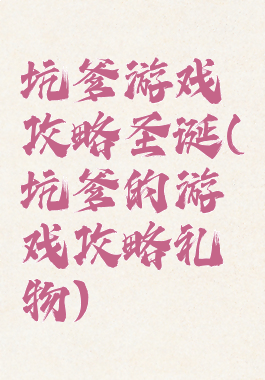 坑爹游戏
攻略圣诞(
坑爹的游
戏攻略礼
物)